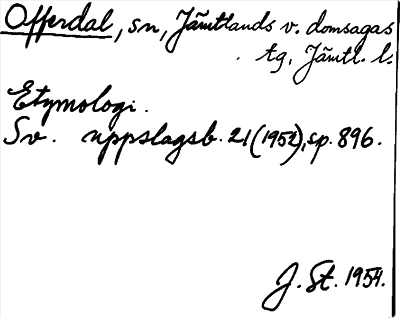 Offerdal, sn, Jämtlands v. domsagas
tg, Jämtl. l.
Etymologi.
Sv. uppslagsb. 21 (1952), sp. 896.
J. St. 1954.